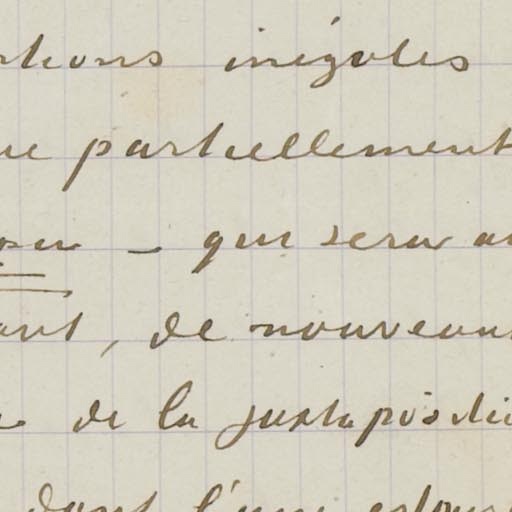 tions inégales
ue partiellement
– qui sera au
ant, de nouveaux
de la juxtapositi
dont l'une